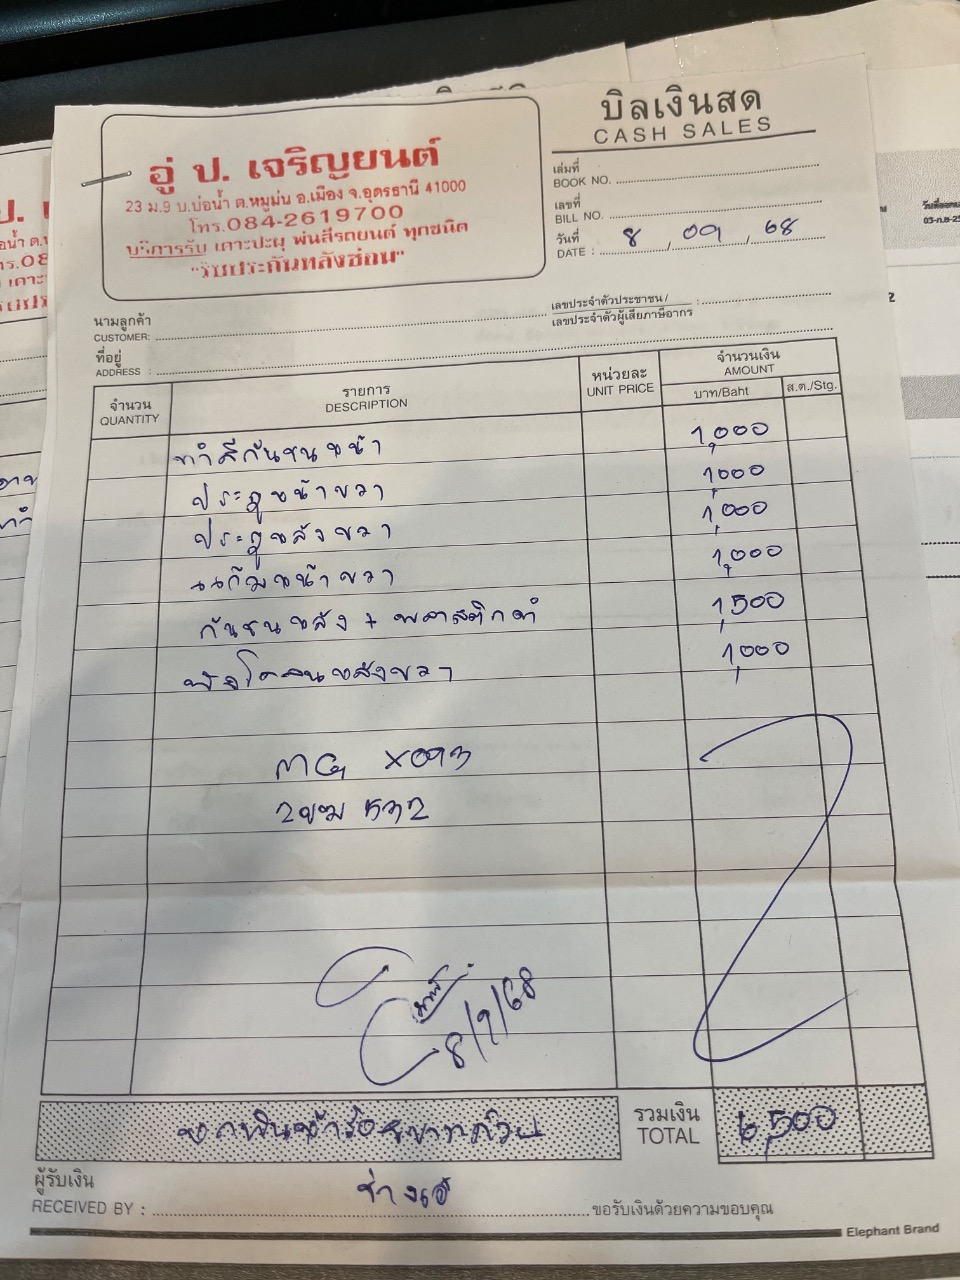 บิลเงินสด
CASH SALES
อู่ ป. เจริญยนต์
23 ม.9 บ.บ่อน้ำ ต.หมูม่น อ.เมือง จ.อุดรธานี 41000
โทร.084-2619700
บริการรับ เคาะปะผุ พ่นสีรถยนต์ ทุกชนิด
"รับประกันหลังซ่อม"
เล่มที่
BOOK NO.
เลขที่
BILL NO.
วันที่
DATE : 8 / 09 / 68
นามลูกค้า
CUSTOMER:
เลขประจำตัวประชาชน /
เลขประจำตัวผู้เสียภาษีอากร :
ที่อยู่
ADDRESS :
จำนวน
QUANTITY
รายการ
DESCRIPTION
หน่วยละ
UNIT PRICE
จำนวนเงิน
AMOUNT
บาท/Baht ส.ต./Stg.
ทำสีกันชนหน้า 1,000
ประตูหน้าขวา 1,000
ประตูหลังขวา 1,000
แก้มหน้าขวา 1,000
กันชนหลัง + พลาสติกดำ 1,500
บังโคลนหลังขวา 1,000
MG
2ขม 532
8/9/68
หกพันห้าร้อยบาทถ้วน
รวมเงิน
TOTAL 6,500
ผู้รับเงิน
RECEIVED BY : ช่างเอ้
ขอรับเงินด้วยความขอบคุณ
Elephant Brand